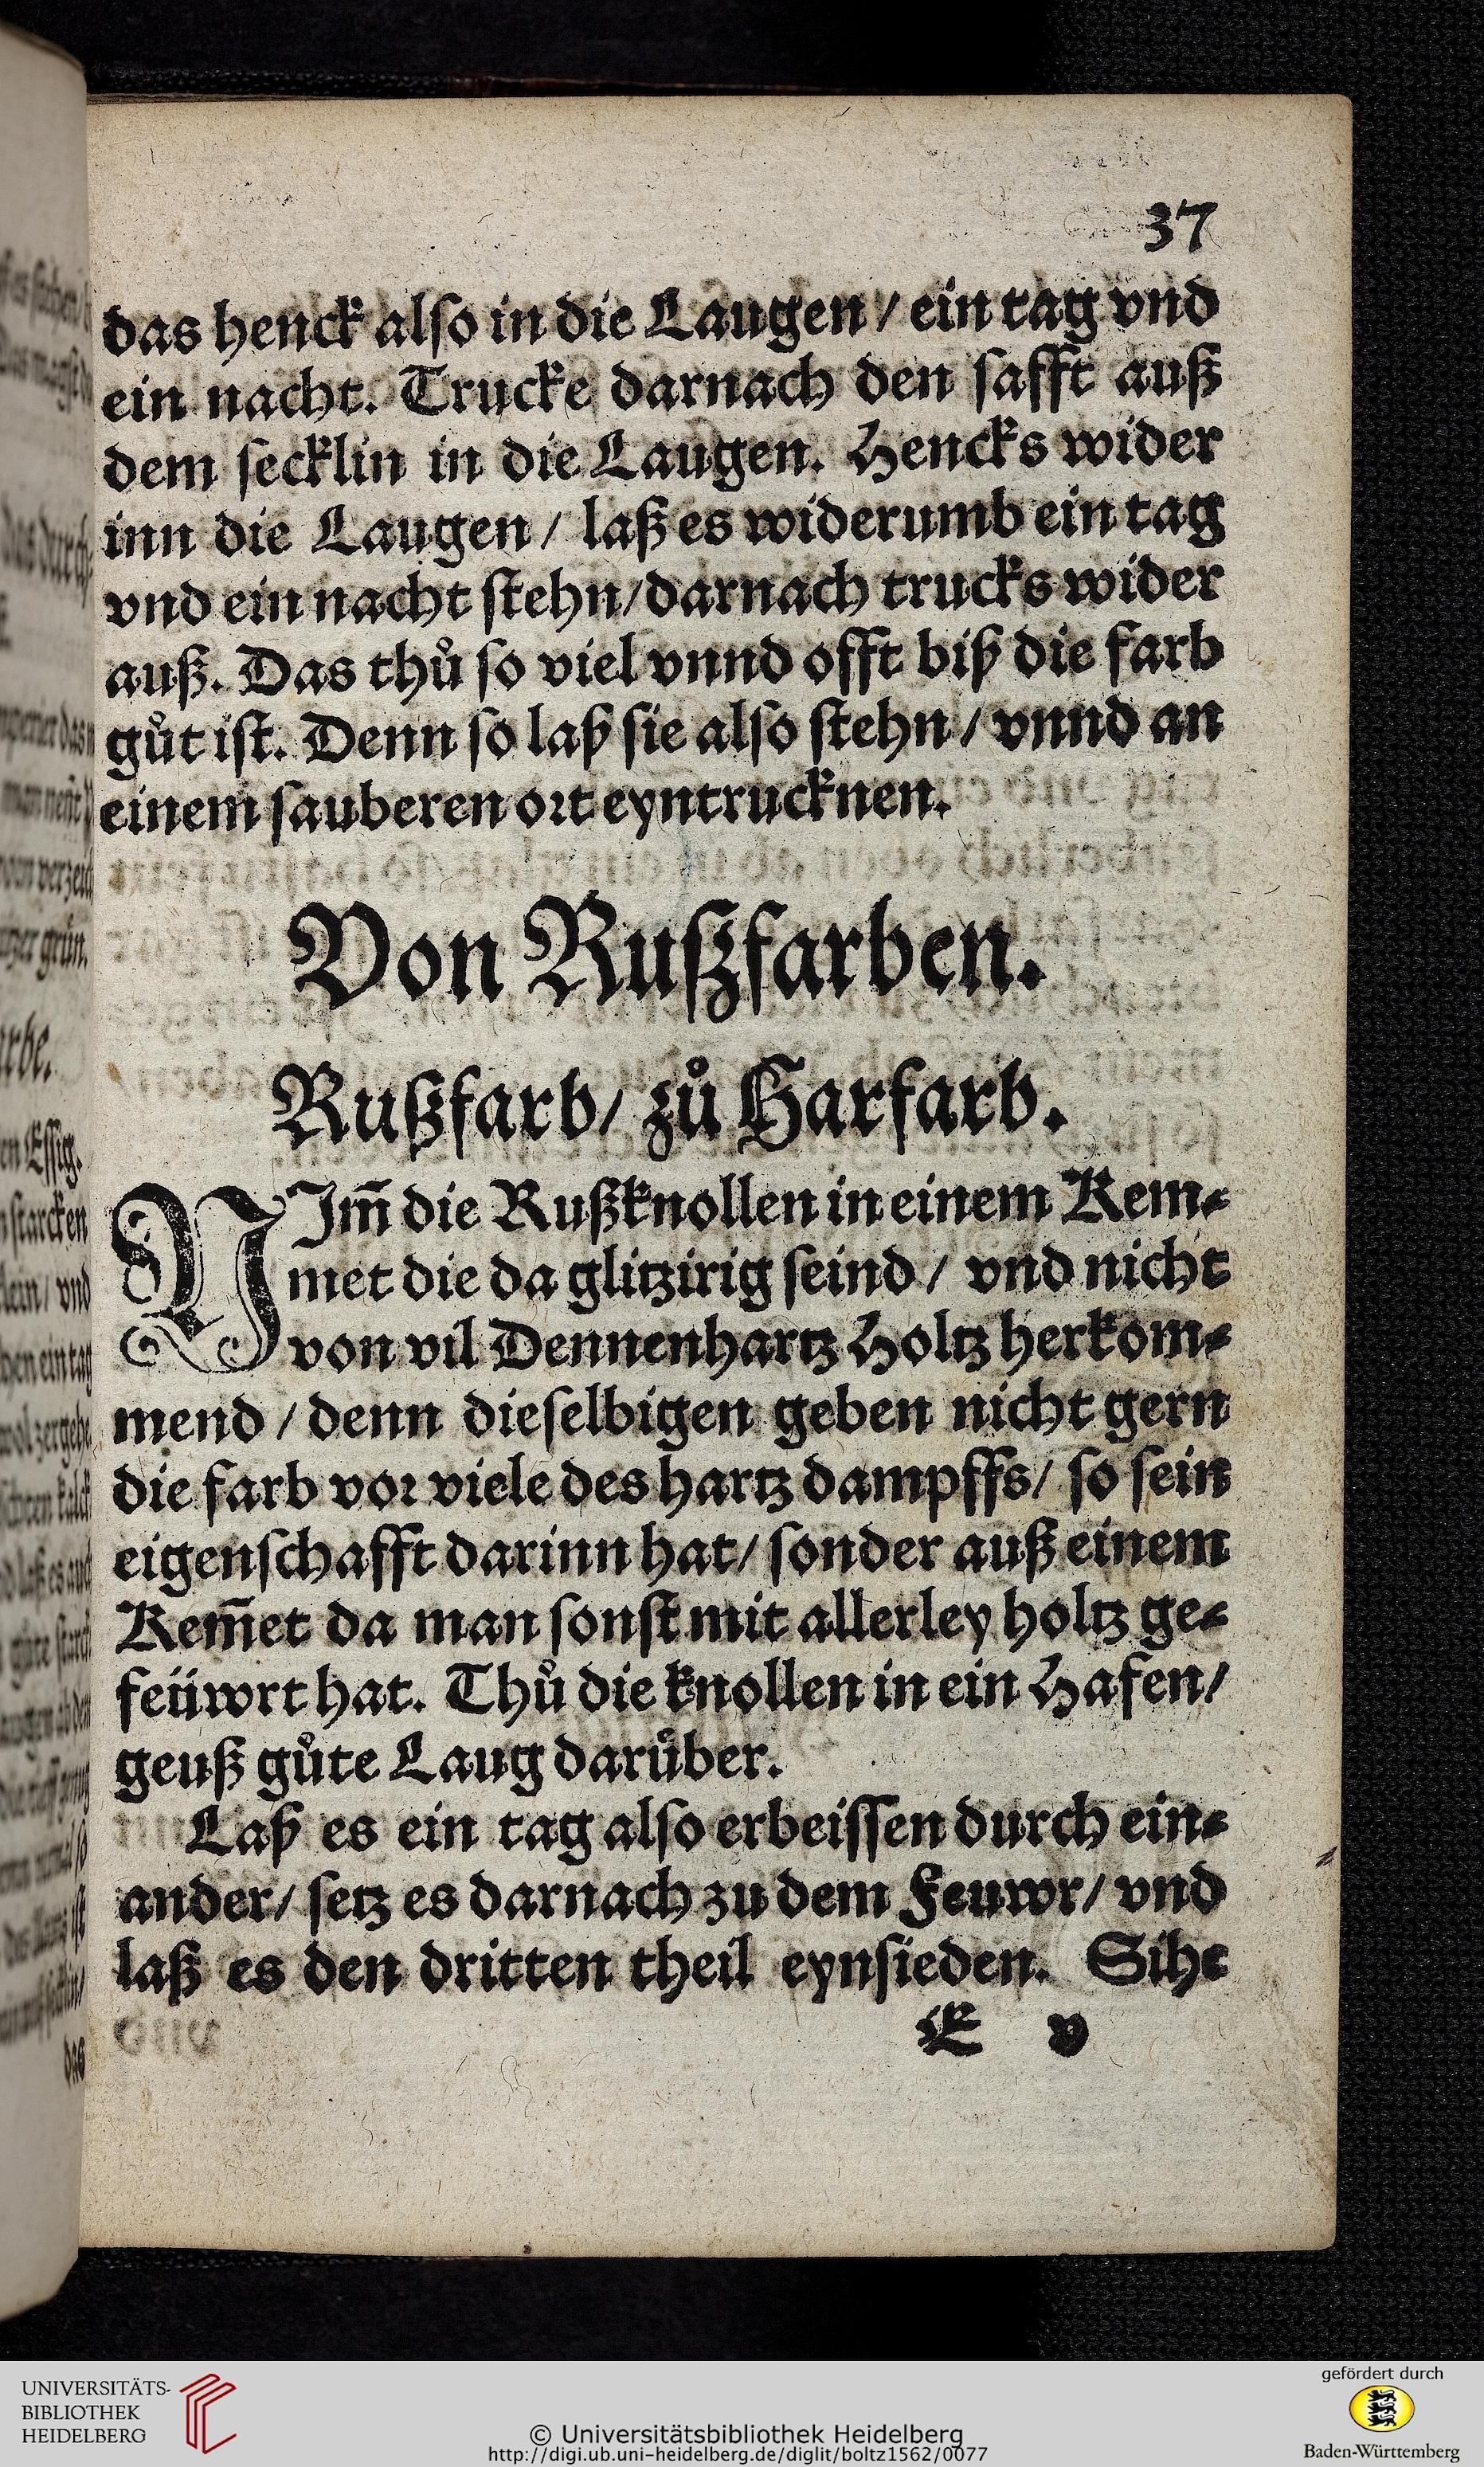 37
das henck also in die Laugen / ein tag vnd
ein nacht. Trucke darnach den safft auß
dem secklin in die Laugen. Hencks wider
inn die Laugen / laß es widerumb ein tag
vnd ein nacht stehn / darnach trucks wider
auß. Das thů so viel vnnd offt biß die farb
gůt ist. Denn so laß sie also stehn / vnnd an
einem sauberen ort eyntrucknen.
Von Rußfarben.
Rußfarb / zů Harfarb.
NIm̄ die Rußknollen in einem Kem⸗
met die da glitzirig seind / vnd nicht
von vil Dennenhartz Holtz herkom⸗
mend / denn dieselbigen geben nicht gern
die farb vor viele des hartz dampffs / so sein
eigenschafft darinn hat / sonder auß einem
Kem̄et da man sonst mit allerley holtz ge⸗
feüwrt hat. Thů die knollen in ein Hafen /
geuß gůte Laug darůber.
Laß es ein tag also erbeissen durch ein⸗
ander / setz es darnach zu dem Feuwr / vnd
laß es den dritten theil eynsieden. Sihe
E v
das
UNIVERSITÄTS-
BIBLIOTHEK
HEIDELBERG
© Universitätsbibliothek Heidelberg
http://digi.ub.uni-heidelberg.de/diglit/boltz1562/0077
gefördert durch
Baden-Württemberg